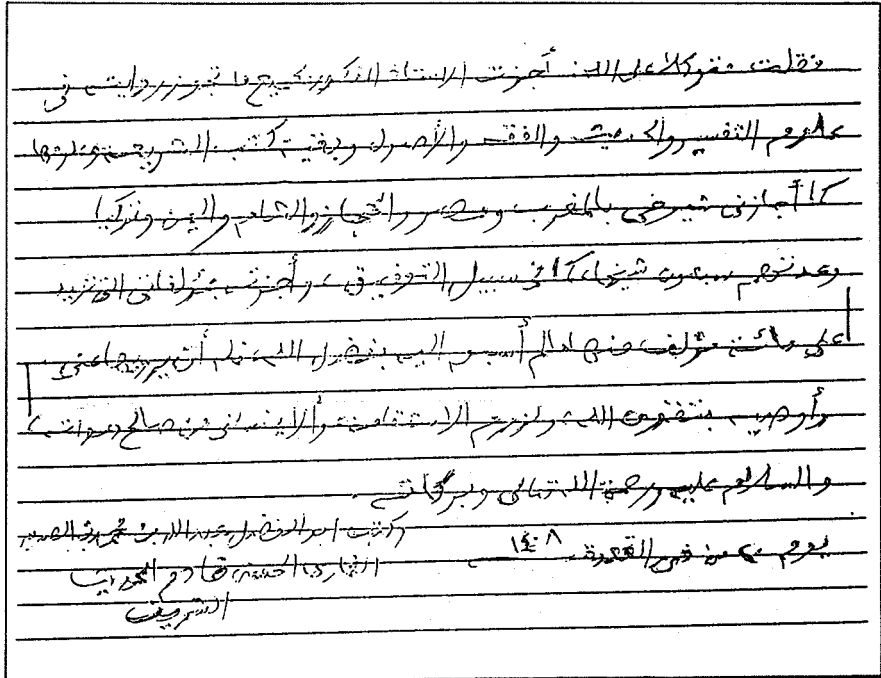 فقلت متوكلا على الله: أجزت الاستاذ المذكور بجميع ما تجوز روايته في
علوم التفسير والحديث والفقه والأصول وبقية كتب الشريعة وعلومها
كما أجازني شيوخي بالمغرب ومصر والحجاز والشام واليمن وتركيا
وعدتهم سبعون شيخا، كما في سبيل التوفيق، وأجزته بمؤلفاتي التي تزيد
على مائة مؤلف، منها ما لم أسبق اليه بفضل الله، فله أن يرويها عني
وأوصيه بتقوى الله ولزوم الاستقامة وألا ينساني من صالح دعواته،
والسلام عليه ورحمة الله تعالى وبركاته.
وكتبه ابو الفضل عبد الله بن محمد بن الصديق
يوم من ذي القعدة ١٤٠٨
الغماري الحسني خادم الحديث
الشريف